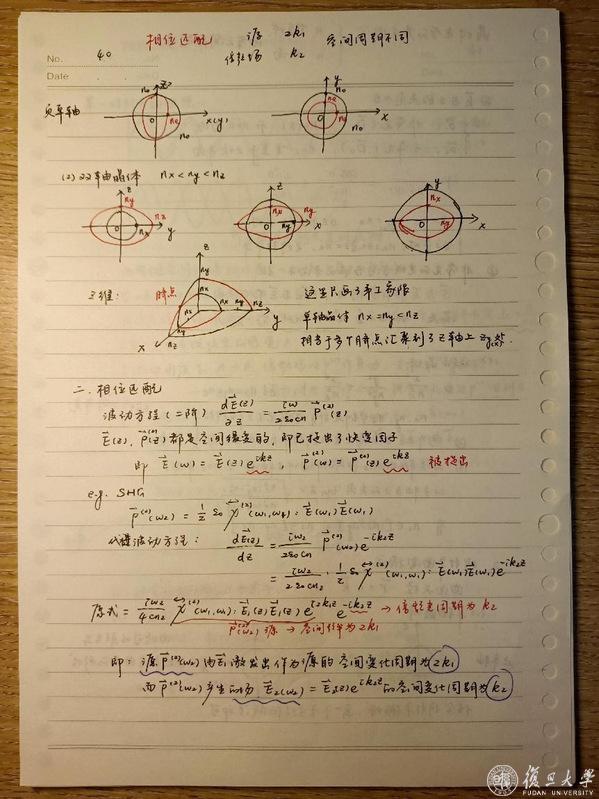 相位匹配 源 2k₁ 空间周期不同
No. 40 信号场 k₂
Date
负单轴
z n₀ nₑ n₀ 0 x(y)
y n₀ nₑ n₀ 0 x
(2) 双轴晶体 nx < ny < nz
z ny nz nx 0 y
z nx ny 0 x
y nx ny 0 x
三维:
z ny nx nx ny nz nz y x
这里只画了第I象限
单轴晶体 nx = ny < nz
相当于多个 点汇聚到了z轴上
二. 相位匹配
波动方程(二阶) dE⃗(z)/∂z = iω/2ε₀cn P⃗⁽²⁾(z)
E⃗(z), P⃗⁽²⁾(z) 都是空间缓变的, 即已提出了快变因子
即 E⃗(ω) = E⃗(z) e^{ikz}, P⃗⁽²⁾(ω) = P⃗⁽²⁾(z) e^{ikz} 被提出
e.g. SHG
P⃗⁽²⁾(ω₂) = 1/2 ε₀ χ⁽²⁾(ω₁,ω₁) : E⃗(ω₁) E⃗(ω₁)
波动方程: dE⃗(z)/dz = iω₂/2ε₀cn P⃗⁽²⁾(ω₂) e^{-ik₂z}
= iω₂/2ε₀cn₂ · 1/2 ε₀ χ⁽²⁾(ω₁,ω₁) : E⃗(ω₁) E⃗(ω₁) e^{-ik₂z}
原式 = iω₂/4cn₂ χ⁽²⁾(ω₁,ω₁) : E⃗₁(z) E⃗₁(z) e^{i2k₁z} e^{-ik₂z} → 信号 周期为 k₂
P⃗⁽²⁾(ω₂) 源 → 空间 为 2k₁
即: 源 P⃗⁽²⁾(ω₂) 由 E⃗₁ 激发出 作为源的空间变化周期为 2k₁
而 P⃗⁽²⁾(ω₂) 产生的场 E⃗₂(ω₂) = E₂(z) e^{ik₂z} 的空间变化周期为 k₂
復旦大學
FUDAN UNIVERSITY